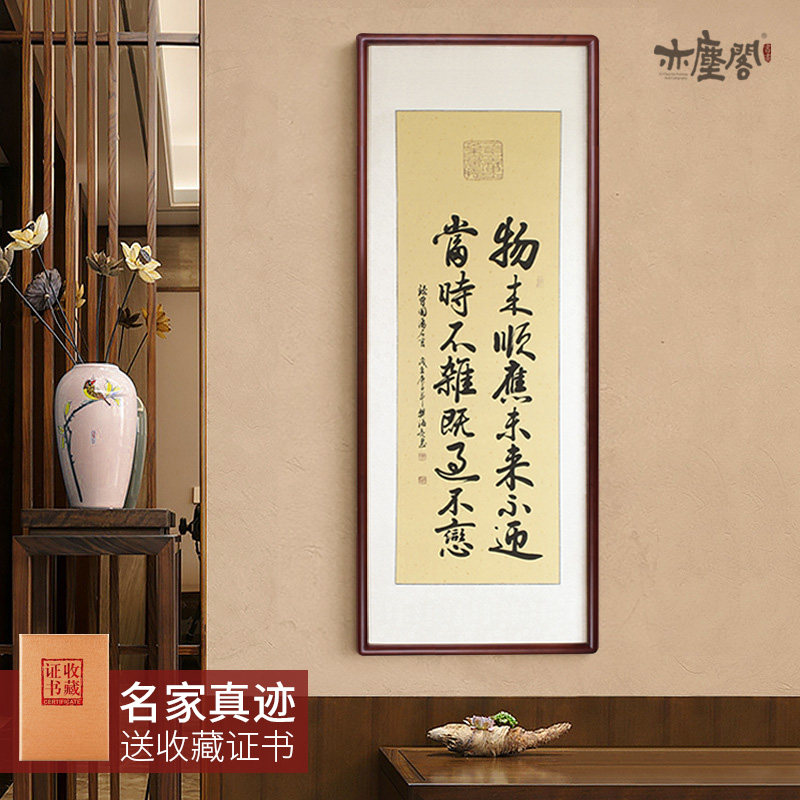 亦塵閣
物来順應未来不迎
當時不雜既過不戀
收藏
证书
CERTIFICATE
名家真迹
送收藏证书